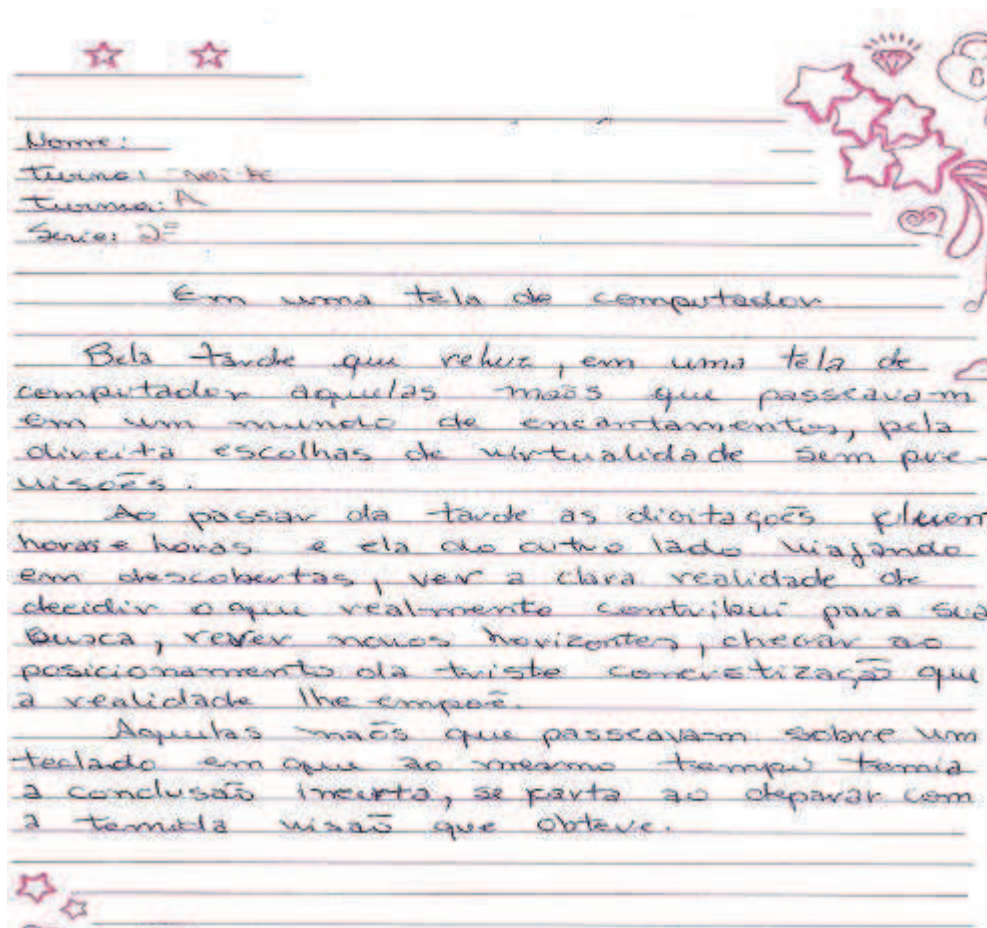 Nome:
turno: noite
Turma: A
Serie: 2ª
Em uma tela de computador
Bela tarde que reluz, em uma tela de
computador aquelas maõs que passeavam
em um mundo de encantamentos, pela
direita escolhas de virtualidade sem pre-
visoẽs.
Ao passar da tarde as digitaçoẽs fluem
horas e horas e ela do outro lado viajando
em descobertas, ver a clara realidade de
decidir o que realmente contribui para sua
Busca, rever novos horizontes, chegar ao
posicionamento da triste concretização que
a realidade lhe empoẽ.
Aquelas maõs que passeavam sobre um
teclado em que ao mesmo tempo temia
a conclusaõ incerta, se farta ao deparar com
a temida visaõ que obteve.